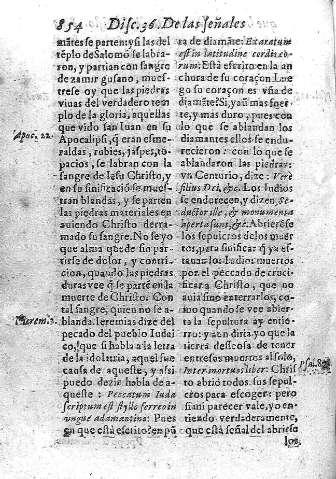 854 Disc. 36. De las señales
mātes se parten: y si las del
tēplo de Salomō se labra-
ron, y partian con sangre
de zamir gusano, mues-
trese oy que las piedras
viuas del verdadero tem-
plo de la gloria, aquellas
que vido san Iuan en su
Apoc. 22.
Apocalipsi, q̄ eran esme-
raldas, rubies, jaspes, to-
pacios, se labran con la
sangre de Iesu Christo, y
en su significació se mues-
tran blandas, y se parten
las piedras materiales en
auiendo Christo derra-
mado su sangre. No se yo
que alma puede sin par-
tirse de dolor, y contri-
cion, quando las piedras
duras vee que parte en la
muerte de Christo. Con
tal sangre, quien no se a-
Hierem. 3.
blanda. Ieremias dize del
pecado del pueblo Iudei-
co, q̄ si habla a la letra
de la idolatria, aquel fue
causa de aqueste, y assi
puedo dezir habla de a-
queste: Peccatum Iuda
scriptum est stylo ferreo in
ungue adamantino: Pues
en que està escrito? en pū
ra de diamāte: Exaratum
est in latitudine cordis eo-
rum: Està escrito en la an
chura de su coraçon Lue
go su coraçon es vña de
diamāte? Si, y aū mas fuer-
te, y mas duro, pues con
lo que se ablandan los
diamantes ellos se endu-
recieron: con lo que se
ablandaron las piedras:
vn Centurio, dize: Vere
filius Dei, &c. Los Iudios
se endurecen, y dizen, Se-
ductor ille, &c. monumenta
aperta sunt, &c. Abrierōse
los sepulcros de los muer
tos, para significar q̄ ya es-
tauan los Iudios muertos
por el peccado de crucifi-
car a Christo, que no
auia sino enterrarlos, co-
mo quando se vee abier-
ta la sepultura ay entie-
rro: y aun diria yo que la
tierra desseosa de tener
entre sus muertos a fsslo,
Psal. 87
Inter mortuos liber: Chris
to abrió todos sus sepul-
cros para escoger: pero
si mi parecer vale, yo en-
tiendo verdaderamente,
que està señal del abrirse
los